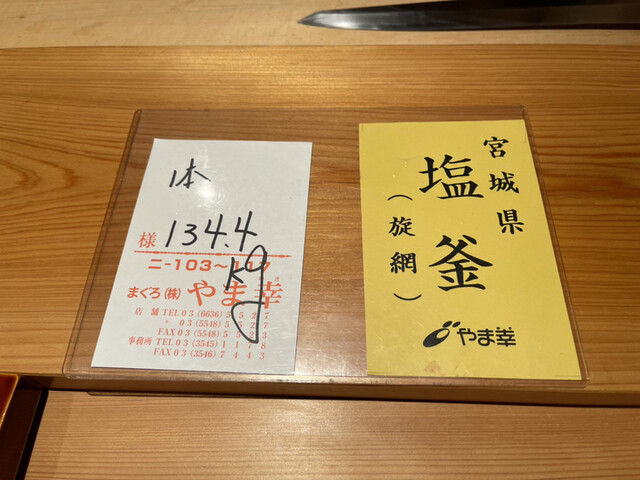 1本
様 134.4
kg
ニ-103〜117
まぐろ(株)やま幸
店 舗 TEL 03 (6636) 5
〃 03 (5548) 5
FAX 03 (5548) 5
事務所 TEL 03 (3545)
FAX 03 (3546) 7443
宮城県
塩釜
(旋網)
やま幸